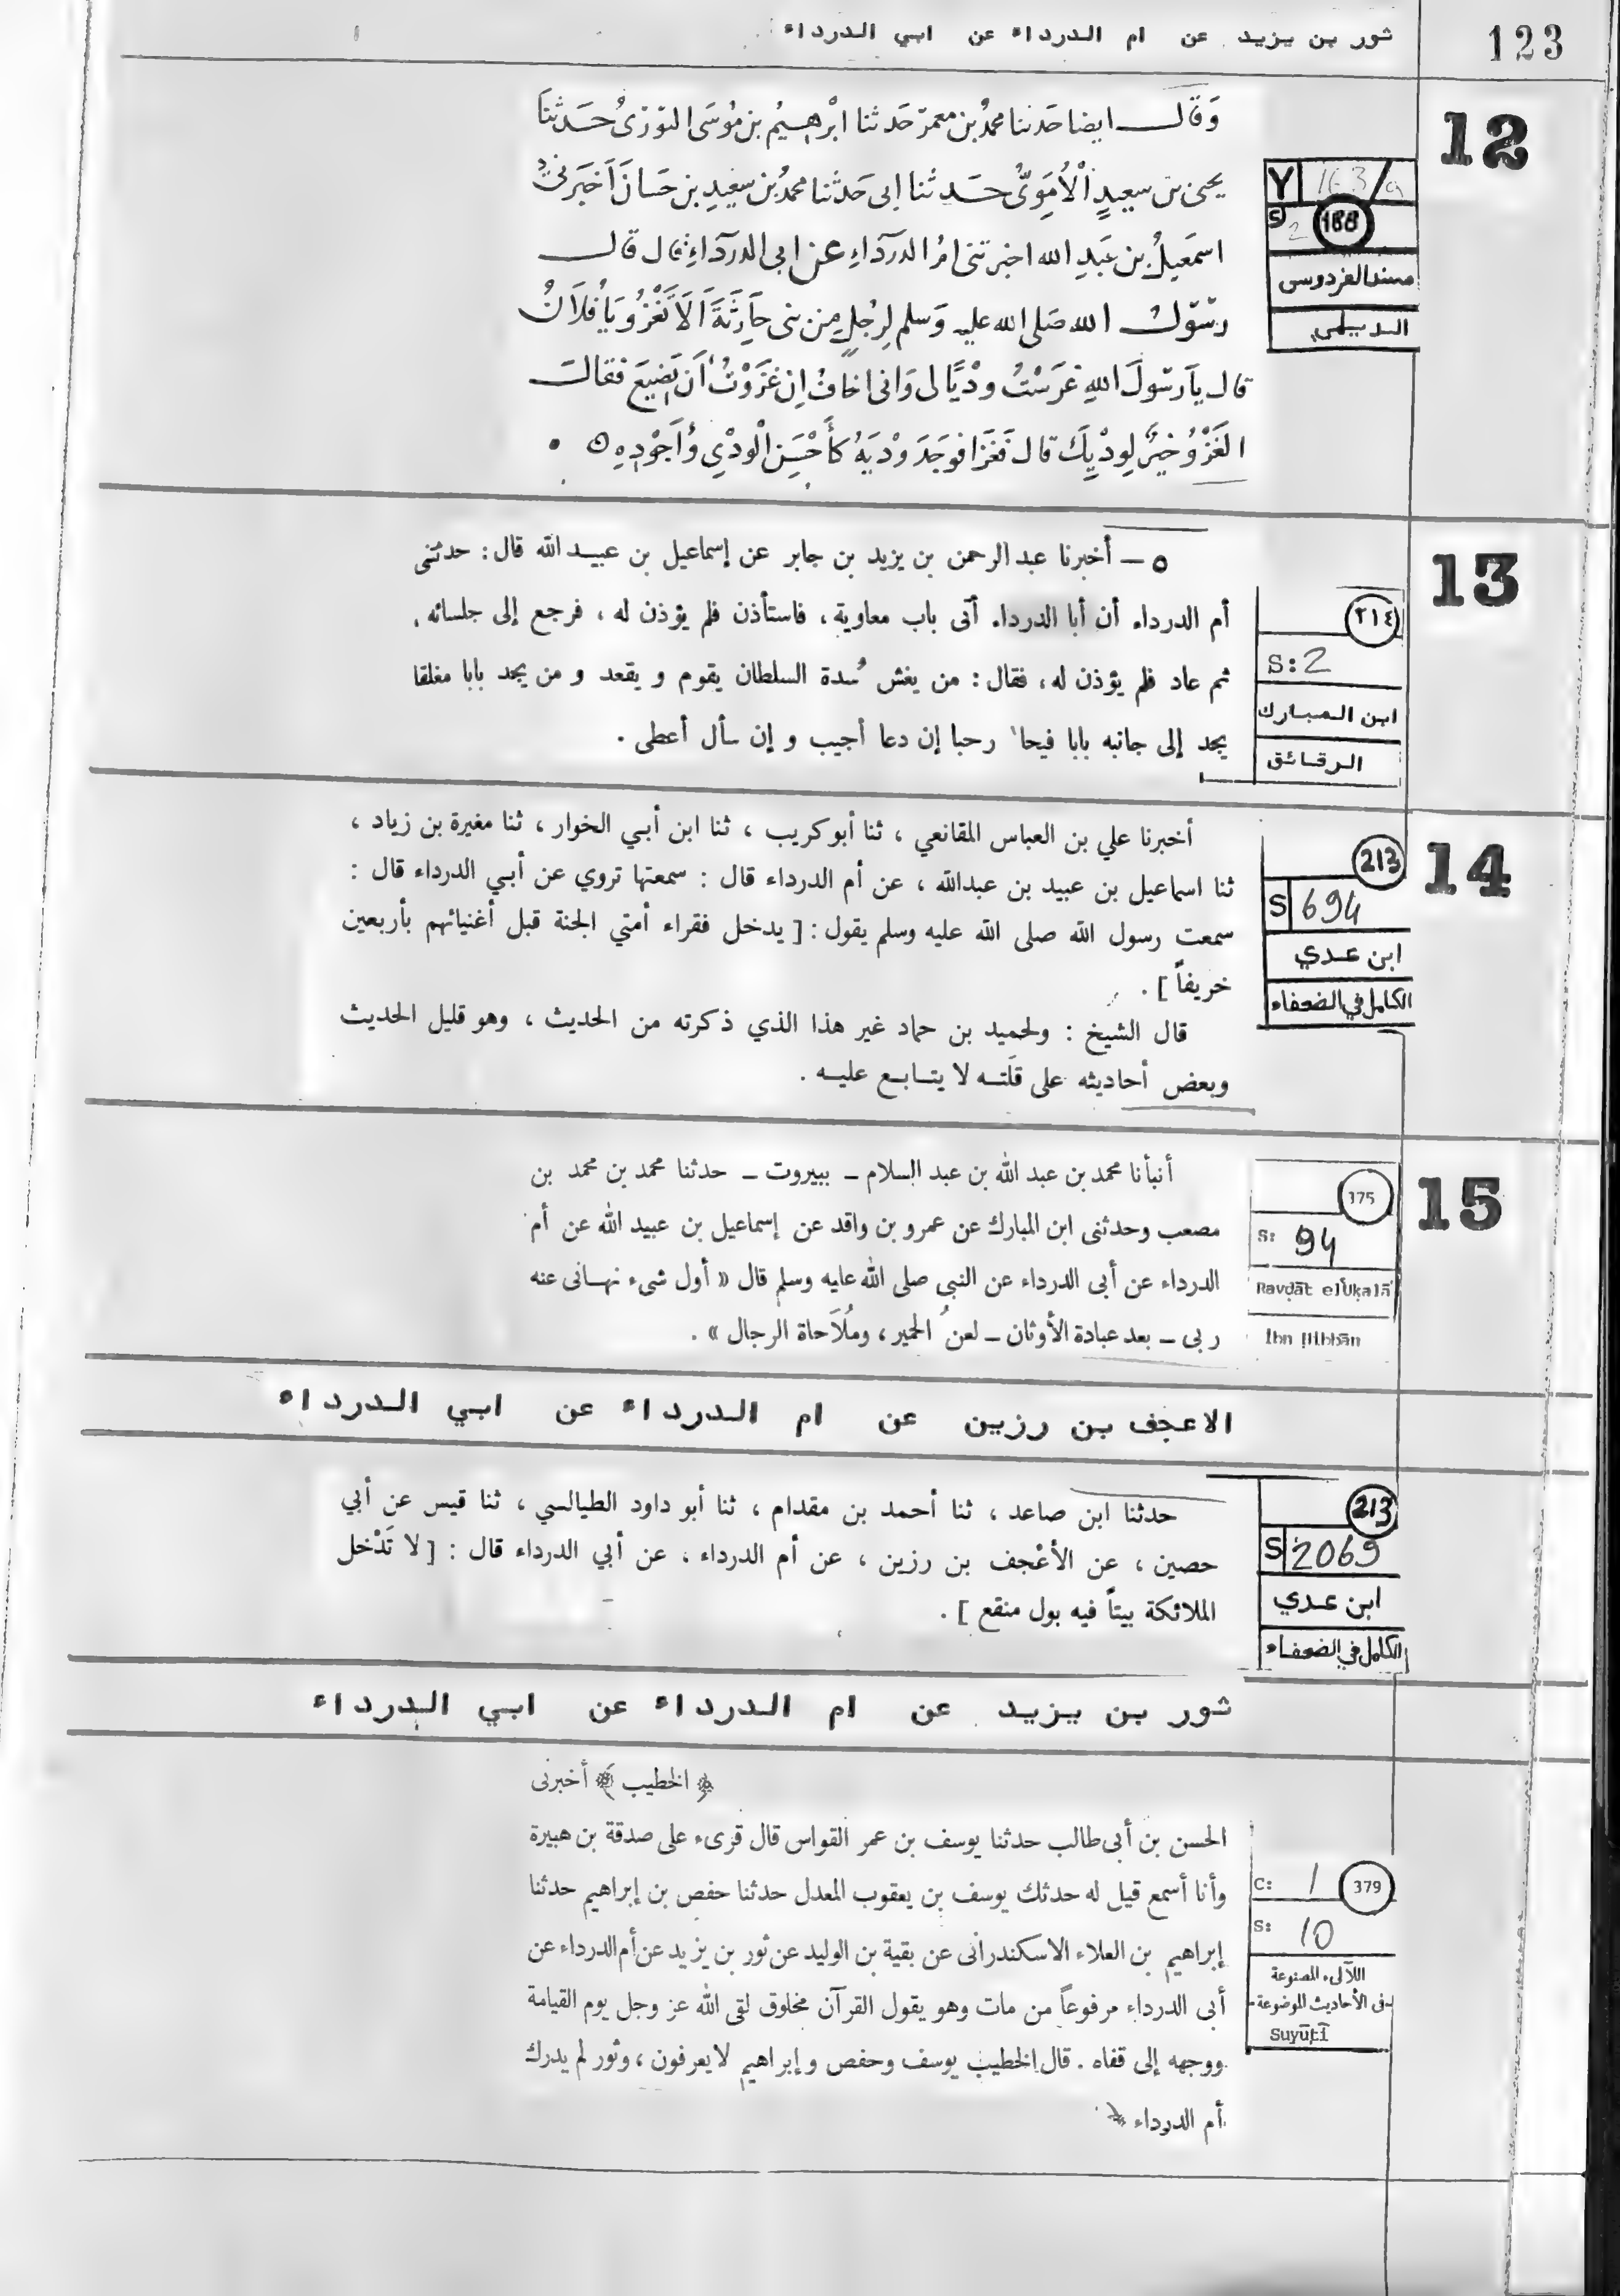 123
ثور بن يزيد عن ام الدرداء عن ابي الدرداء
12
وَقَالَ ايضا حَدثنا محمدُ بن معمر حَدثنا ابْرهِيمُ بن مُوسَى التوزىُّ حَدثنا
يحيى بن سعيدٍ الْأُمَوِىُّ حَدثنا ابى حَدثنا محمدُ بن سعيدِ بن حَسان اَخبَرنى
اسمَعيلُ بن عَبَدِ الله اخبرتنى امُّ الدرَدَاءِ عن ابى الدرَدَاءِ قال قال
رسَول الله صَلى الله عليه وَسلم لِرجُلٍ من بنى حَارثَةَ اَلَا تَغْزُو يَا فُلَانُ
قال يارَسولَ اللهِ غَرَسْتُ وَدْيًا لى وَانى اخافُ اِن غَزَوْتُ اَن يَضِيعَ فقال
الغَزْوُ خيرٌ لِودْيِكَ قال فَغَزَا فوَجَدَ وَدْيَهُ كَأَحْسَنِ الْودْىِ وَاَجْوَدِهِ
Y 163/a
S 2 188
مسند الفردوسى
الديلمي
13
٥ – أخبرنا عبد الرحمن بن يزيد بن جابر عن إسماعيل بن عبيد الله قال: حدثتنى
أم الدرداء أن أبا الدرداء أتى باب معاوية، فاستأذن فلم يؤذن له، فرجع إلى جلسائه،
ثم عاد فلم يؤذن له، فقال: من يغش سُدة السلطان يقوم و يقعد و من يجد بابا مغلقا
يجد إلى جانبه بابا فيحا رحبا إن دعا أجيب و إن سأل أعطى.
٢١٤
S: 2
ابن المبارك
الرقائق
14
أخبرنا علي بن العباس المقانعي ، ثنا أبو كريب ، ثنا ابن أبي الخوار ، ثنا مغيرة بن زياد ،
ثنا اسماعيل بن عبيد بن عبدالله ، عن أم الدرداء قال : سمعتها تروي عن أبي الدرداء قال :
سمعت رسول الله صلى الله عليه وسلم يقول : [ يدخل فقراء أمتي الجنة قبل أغنيائهم بأربعين
خريفاً ] .
قال الشيخ : ولحميد بن حماد غير هذا الذي ذكرته من الحديث ، وهو قليل الحديث
وبعض أحاديثه على قلّته لا يتابع عليه .
213
S 694
ابن عدي
الكامل في الضعفاء
15
أنبأنا محمد بن عبد الله بن عبد السلام – ببيروت – حدثنا محمد بن محمد بن
مصعب وحدثنى ابن المبارك عن عمرو بن واقد عن إسماعيل بن عبيد الله عن أم
الدرداء عن أبى الدرداء عن النبى صلى الله عليه وسلم قال « أول شىء نهانى عنه
ربى – بعد عبادة الأوثان – لعنُ الحمير، ومُلاَحاة الرجال » .
375
S: 94
Ravḍāt el'Uḳalā
İbn Ḥibbān
الاعجف بن رزين عن ام الدرداء عن ابي الدرداء
حدثنا ابن صاعد ، ثنا أحمد بن مقدام ، ثنا أبو داود الطيالسي ، ثنا قيس عن أبي
حصين ، عن الأعْجف بن رزين ، عن أم الدرداء ، عن أبي الدرداء قال : [ لا تَدْخل
الملائكة بيتاً فيه بول منقع ] .
213
S 2069
ابن عدي
الكامل في الضعفاء
ثور بن يزيد عن ام الدرداء عن ابي الدرداء
﴿ الخطيب ﴾ أخبرنى
الحسن بن أبى طالب حدثنا يوسف بن عمر القواس قال قرىء على صدقة بن هبيرة
وأنا أسمع قيل له حدثك يوسف بن يعقوب المعدل حدثنا حفص بن إبراهيم حدثنا
إبراهيم بن العلاء الاسكندرانى عن بقية بن الوليد عن ثور بن يزيد عن أم الدرداء عن
أبى الدرداء مرفوعاً من مات وهو يقول القرآن مخلوق لقى الله عز وجل يوم القيامة
ووجهه إلى قفاه . قال الخطيب يوسف وحفص وإبراهيم لا يعرفون ، وثور لم يدرك
أم الدرداء
C: 1 379
S: 10
اللآلىء المصنوعة
فى الأحاديث الموضوعة
Suyūṭī